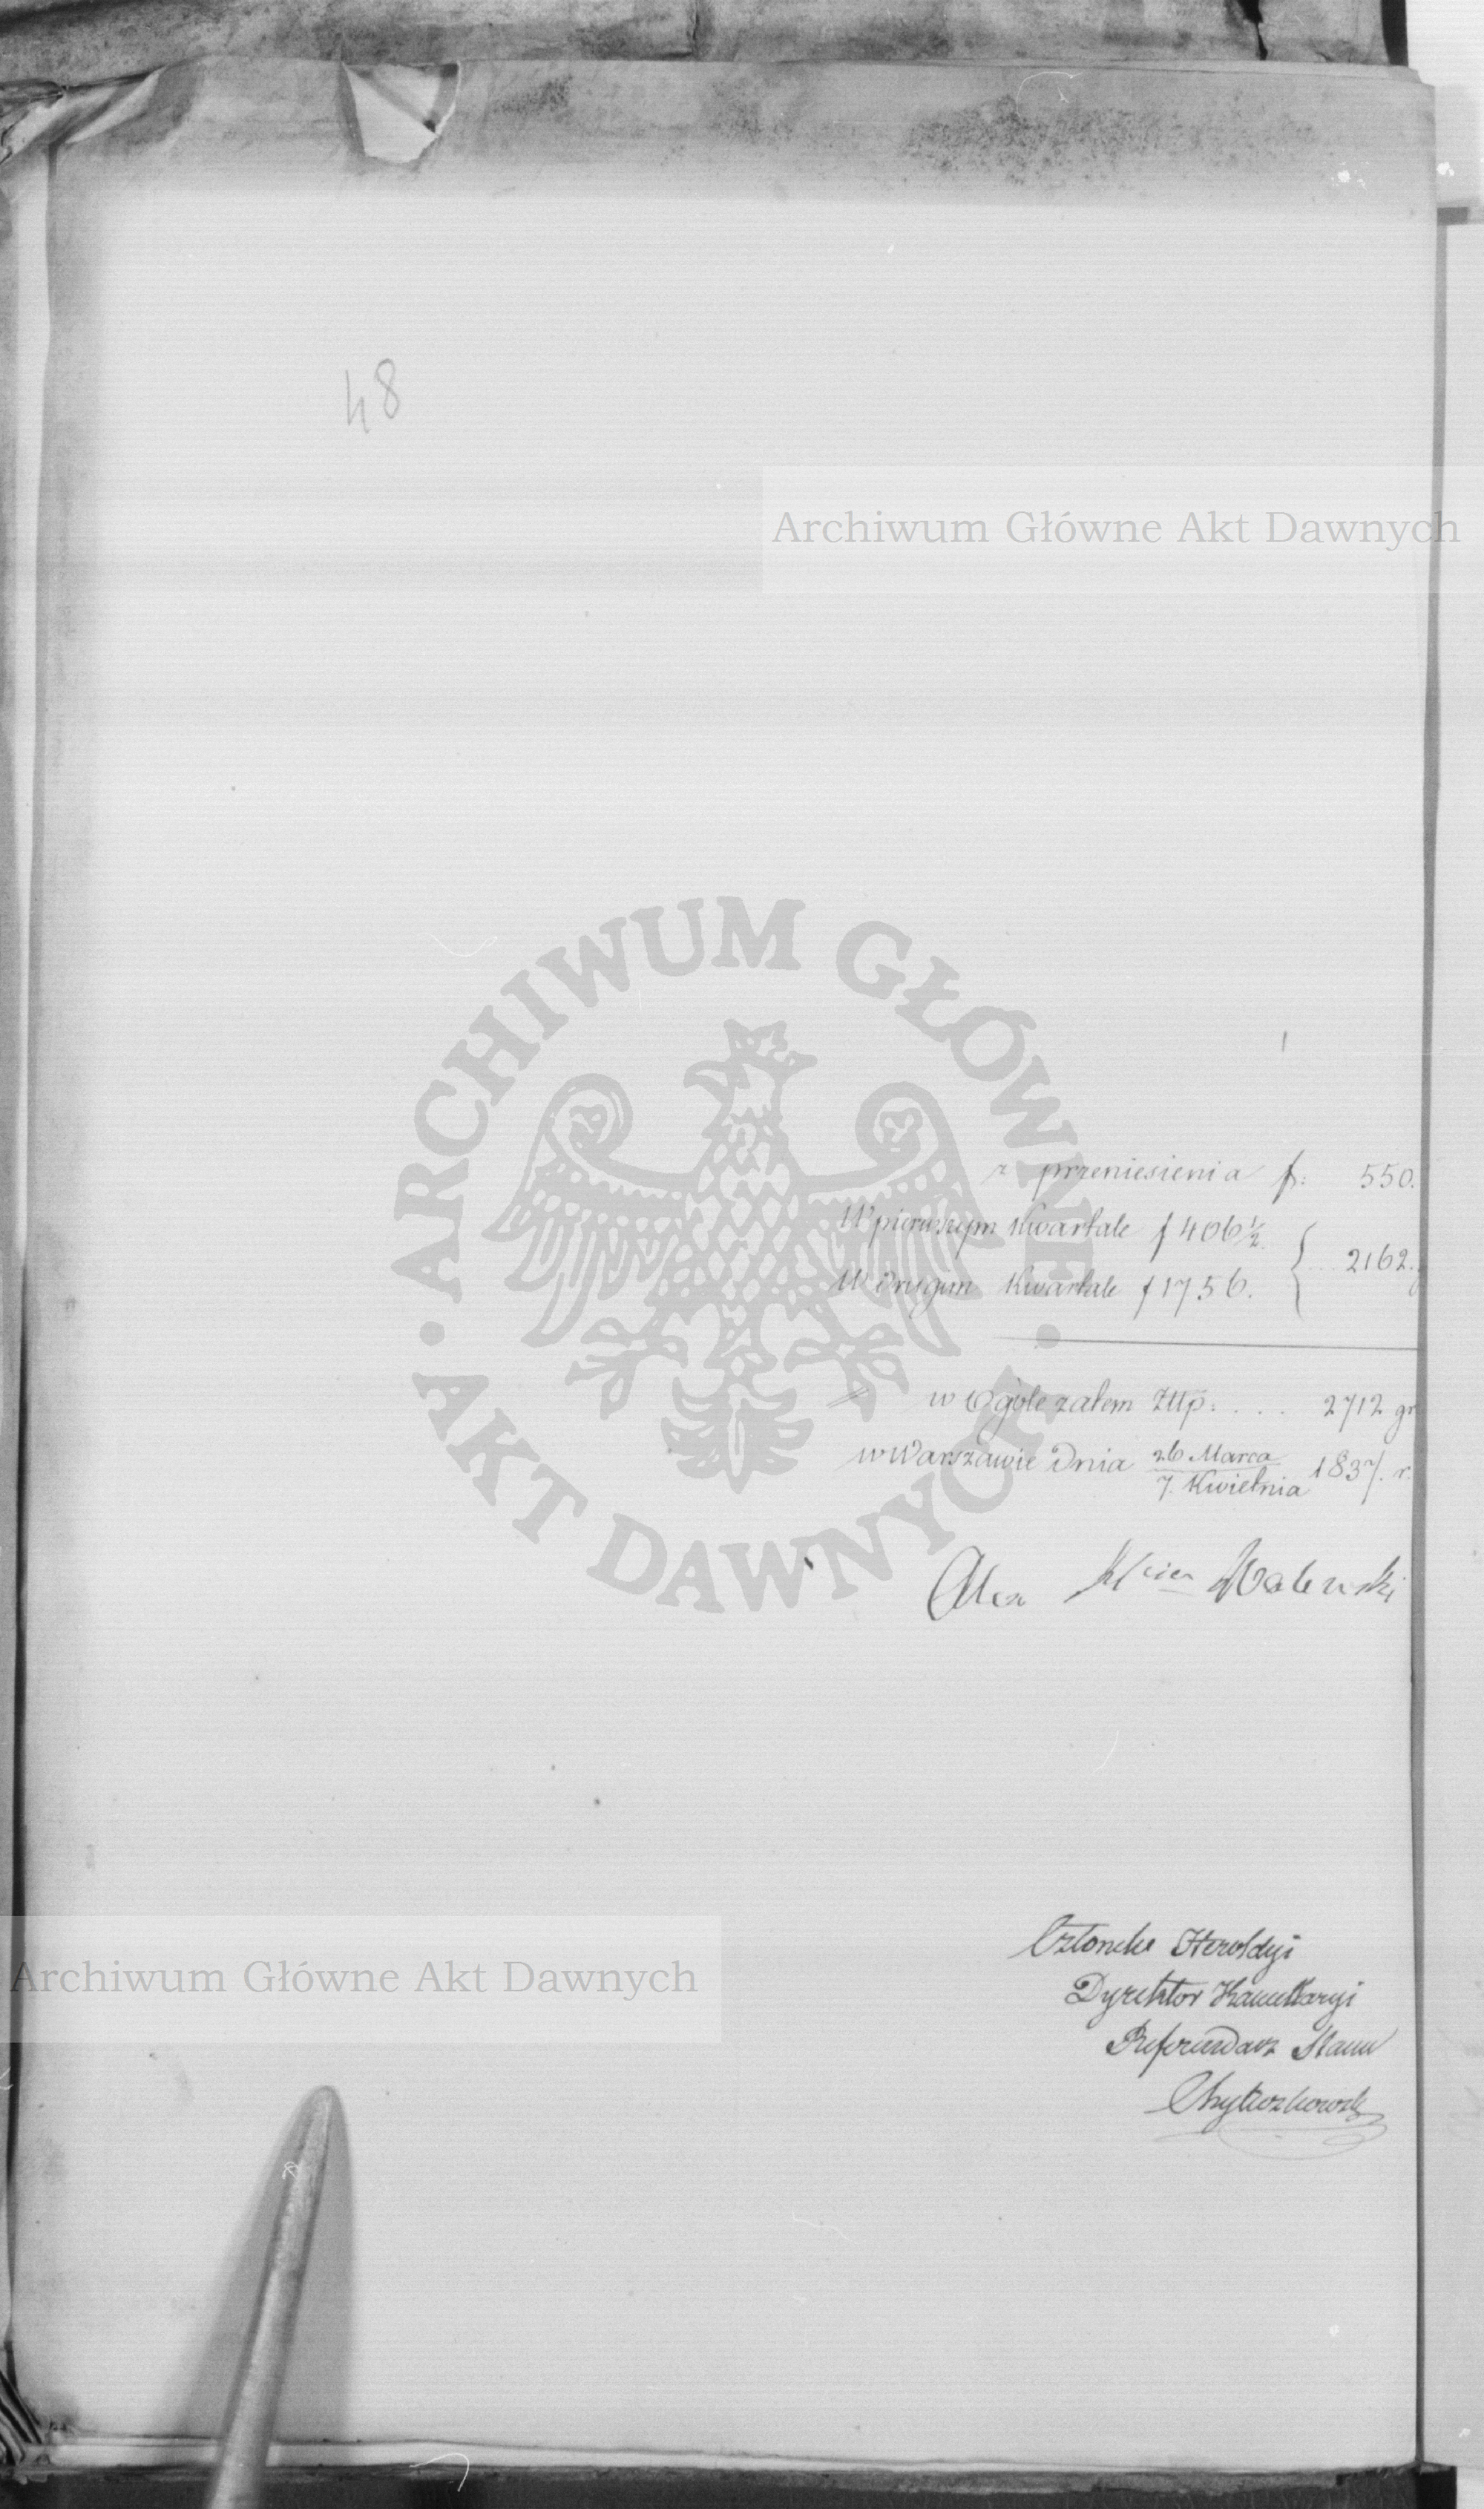 48
Archiwum Główne Akt Dawnych
z przeniesienia f: 550.
W pierwszym Kwartale f 406 1/2
W drugim Kwartale f 1756. } .. 2162.
w Ogóle zatem Złtp: . . . 2712 gr
w Warszawie Dnia 26 Marca / 7. Kwietnia 1837. r.
Alex Walewski
ARCHIWUM GŁÓWNE AKT DAWNYCH
Członek Heroldyi
Archiwum Główne Akt Dawnych
Dyrektor Kancellaryi
Referendarz Stanu